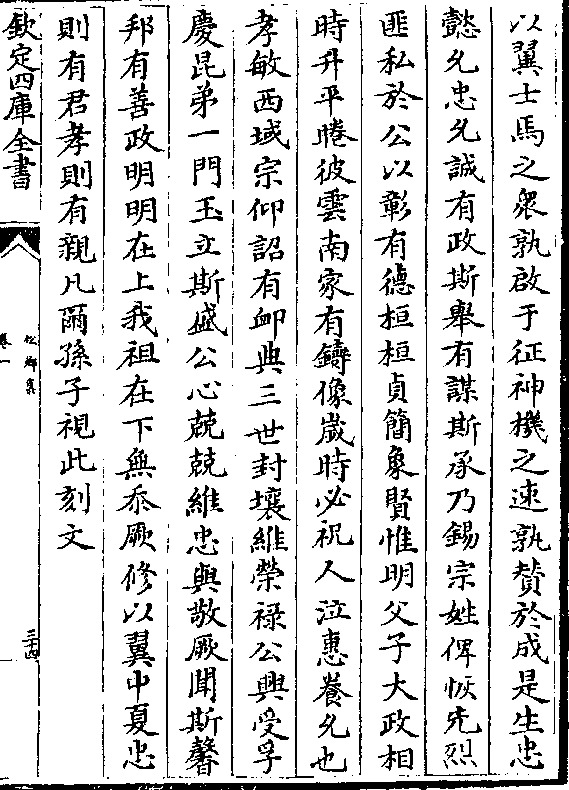 以翼士馬之衆孰啟于征神機之速孰賛於成是生忠
懿允忠允誠有政斯舉有謀斯承乃錫宗姓俾恢先烈
匪私於公以彰有德桓桓貞簡象賢惟明父子大政相
時升平睠彼雲南家有鑄像嵗時必祝人泣惠養允也
孝敏西域宗仰詔有䘏典三世封壤維榮禄公興受孚
慶昆弟一門玉立斯盛公心兢兢維忠與敬厥聞斯馨
邦有善政明明在上我祖在下無忝厥修以翼中夏忠
則有君孝則有親凡爾孫子視此刻文
欽定四庫全書
松鄉集
卷一
三十四